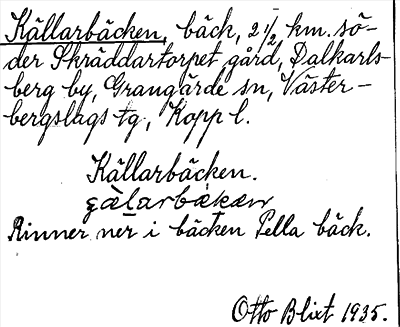 Källarbäcken, bäck, 2 1/2 km. sö-
der Skräddartorpet gård, Dalkarls-
berg by, Grangärde sn, Väster-
bergslags tg, Kopp l.
Källarbäcken.
Rinner ner i bäcken Pella bäck.
Otto Blixt 1935.